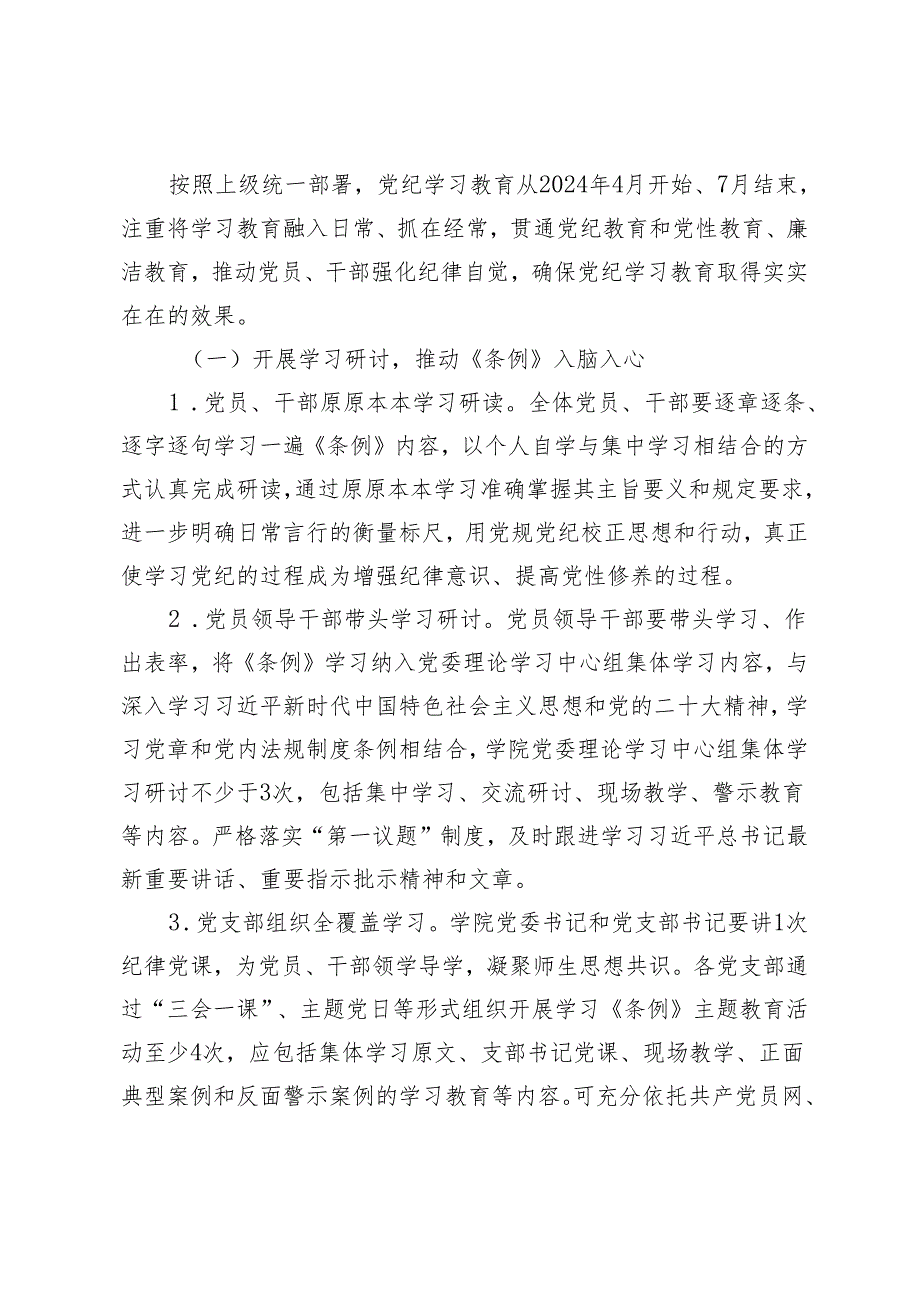 按照上级统一部署，党纪学习教育从2024年4月开始、7月结束，
注重将学习教育融入日常、抓在经常，贯通党纪教育和党性教育、廉
洁教育，推动党员、干部强化纪律自觉，确保党纪学习教育取得实实
在在的效果。
（一）开展学习研讨，推动《条例》入脑入心
1 .党员、干部原原本本学习研读。全体党员、干部要逐章逐条、
逐字逐句学习一遍《条例》内容，以个人自学与集中学习相结合的方
式认真完成研读，通过原原本本学习准确掌握其主旨要义和规定要求，
进一步明确日常言行的衡量标尺，用党规党纪校正思想和行动，真正
使学习党纪的过程成为增强纪律意识、提高党性修养的过程。
2 .党员领导干部带头学习研讨。党员领导干部要带头学习、作
出表率，将《条例》学习纳入党委理论学习中心组集体学习内容，与
深入学习习近平新时代中国特色社会主义思想和党的二十大精神，学
习党章和党内法规制度条例相结合，学院党委理论学习中心组集体学
习研讨不少于3次，包括集中学习、交流研讨、现场教学、警示教育
等内容。严格落实“第一议题”制度，及时跟进学习习近平总书记最
新重要讲话、重要指示批示精神和文章。
3.党支部组织全覆盖学习。学院党委书记和党支部书记要讲1次
纪律党课，为党员、干部领学导学，凝聚师生思想共识。各党支部通
过“三会一课”、主题党日等形式组织开展学习《条例》主题教育活
动至少4次，应包括集体学习原文、支部书记党课、现场教学、正面
典型案例和反面警示案例的学习教育等内容。可充分依托共产党员网、